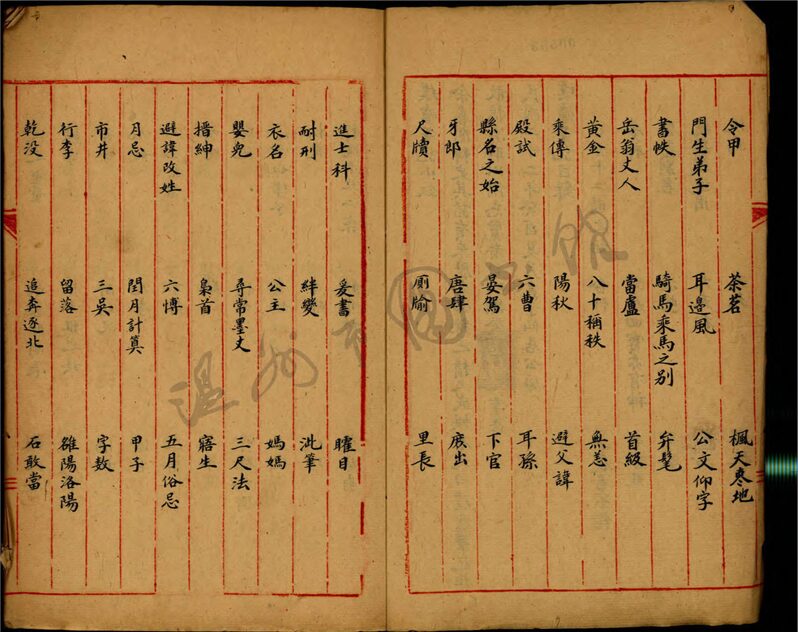 令甲 茶茗 楓天棗地
門生弟子 耳邊風 公文仰字
書帙 騎馬乘馬之別 弁髦
岳翁丈人 當盧 首級
黃金 八十稱秩 無恙
乘傳 陽秋 避父諱
殿試 六曹 耳孫
縣名之始 晏駕 下官
牙郎 唐肆 底出
尺牘 廁牏 里長
進士科 爰書 曜日
耐刑 絆變 泚筆
衣名 公主 媽媽
嬰兒 尋常墨丈 三尺法
搢紳 梟首 寤生
避諱改姓 六博 五月俗忌
月忌 閏月計算 甲子
市井 三吳 字數
行李 留落 雒陽洛陽
乾没 追奔逐北 石敢當
溫州市圖書館